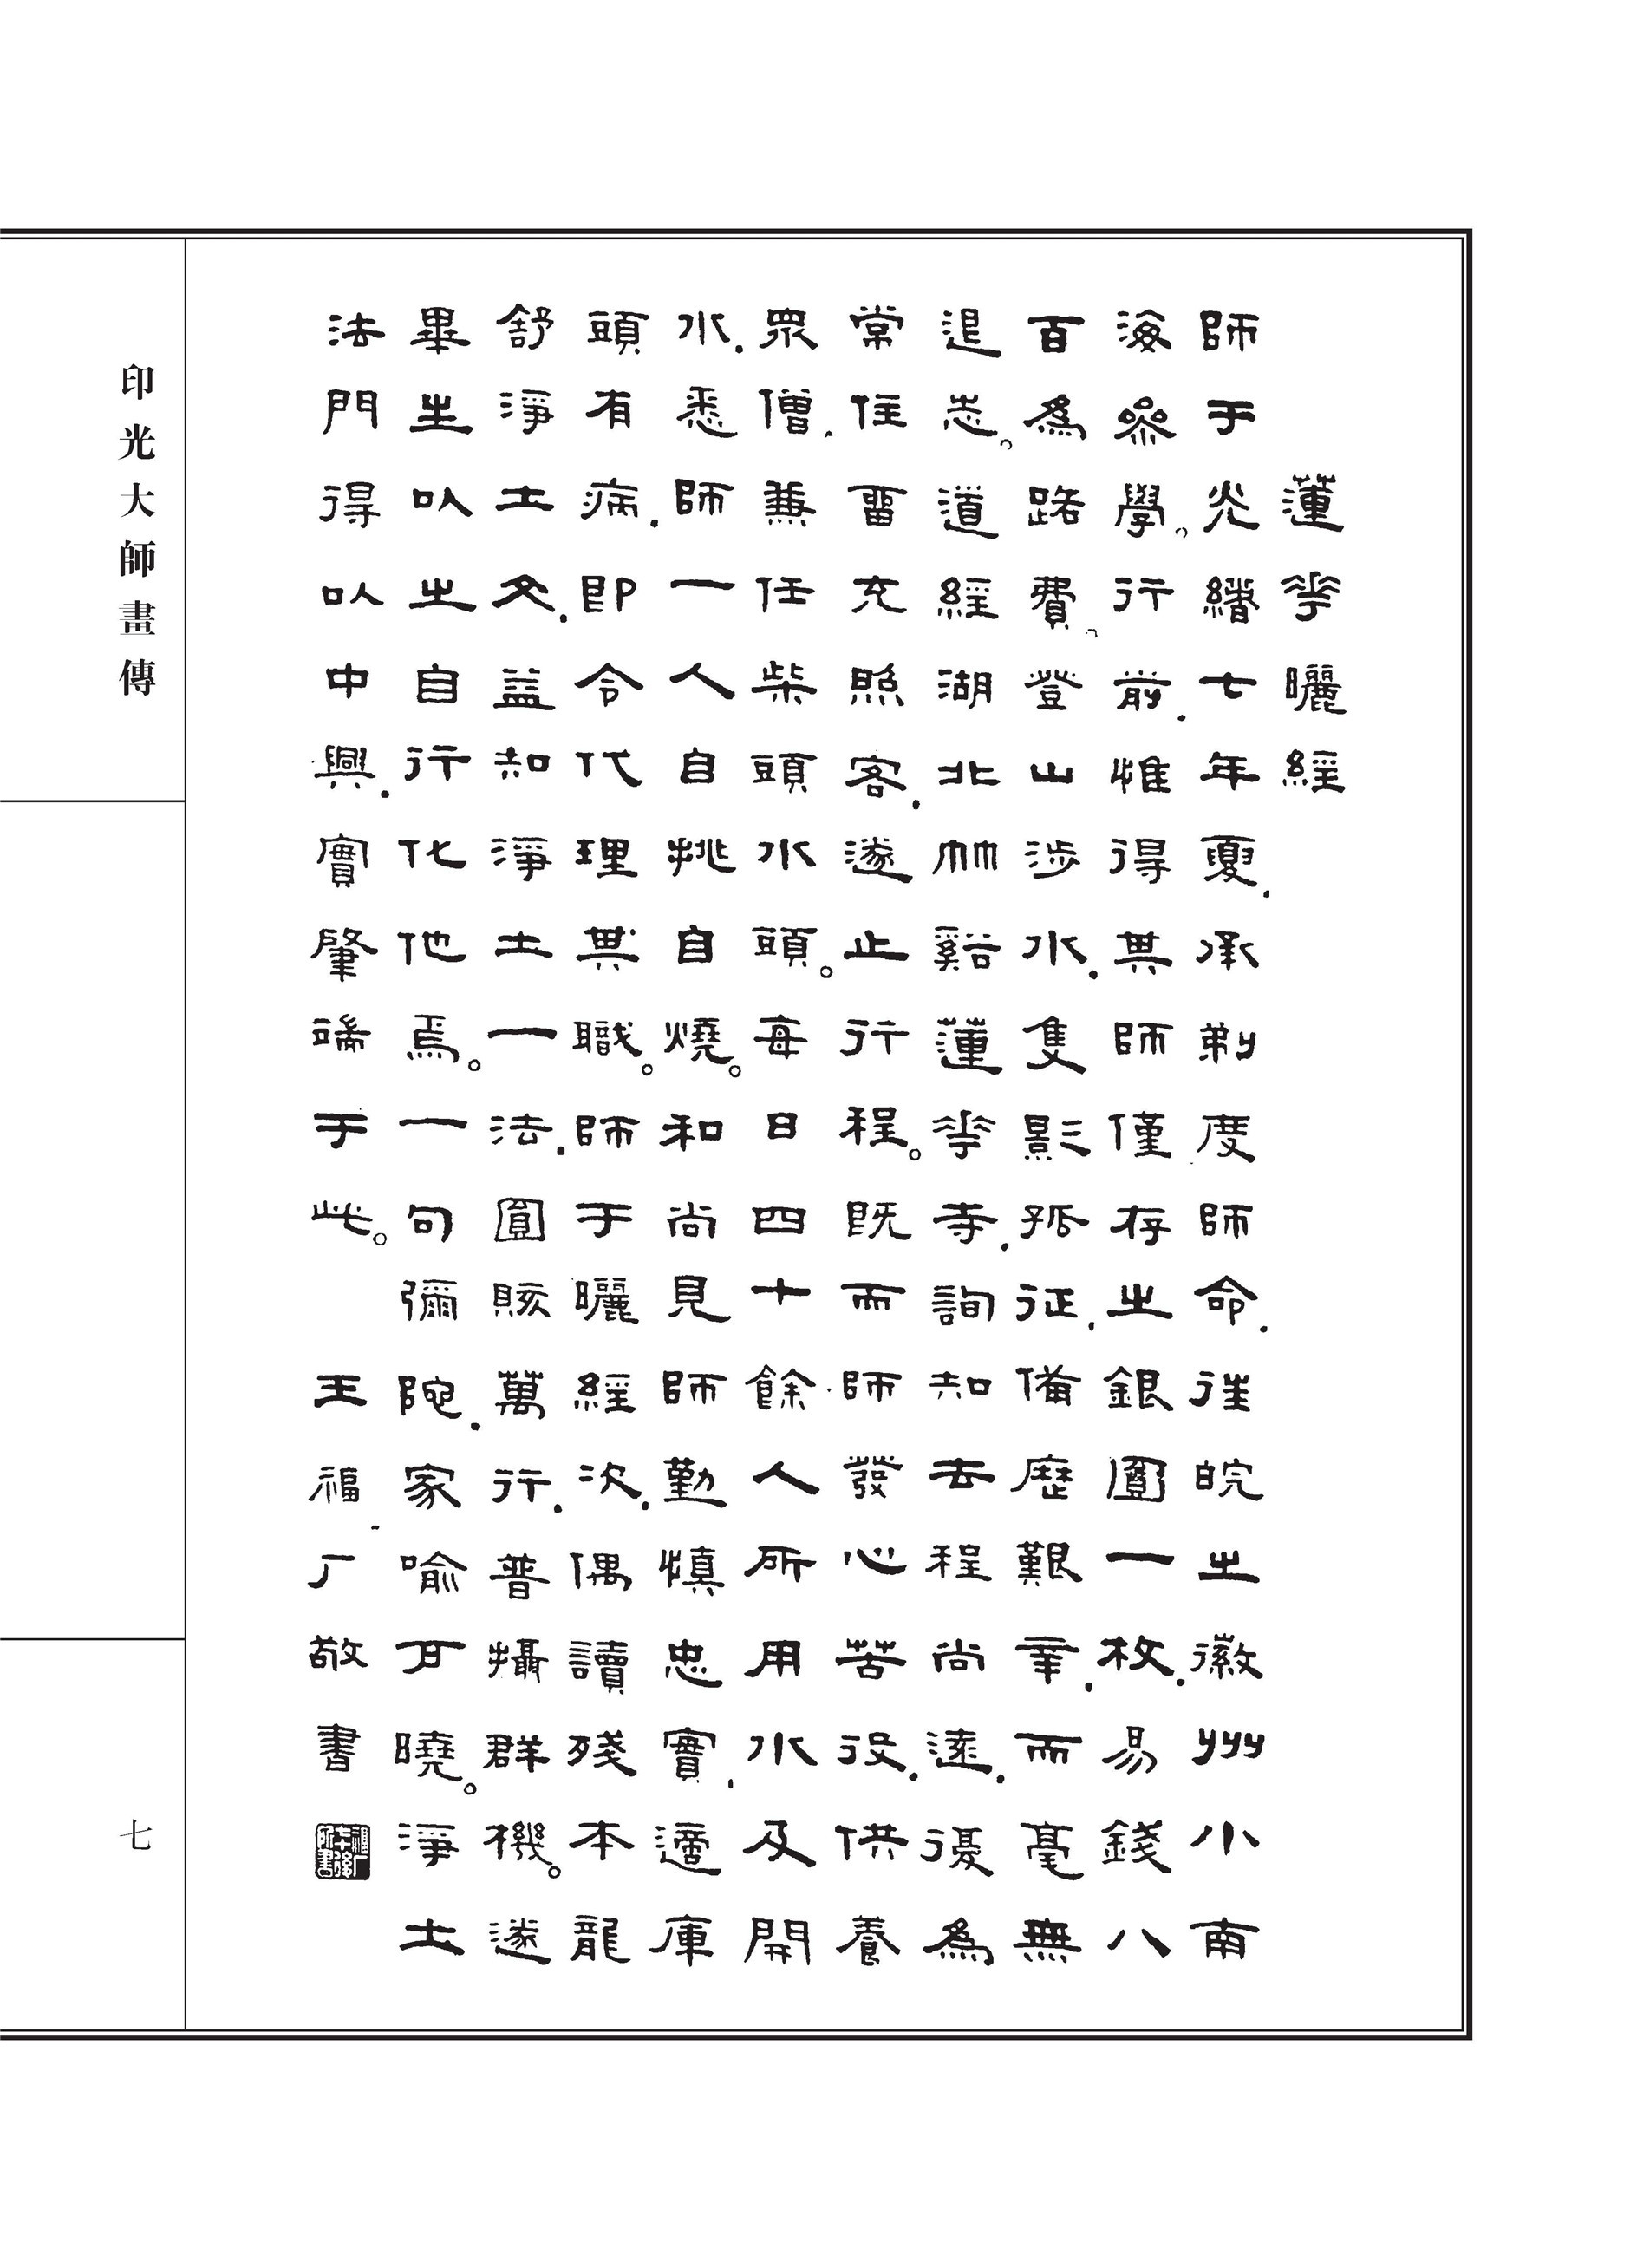 蓮華曬經
師于光緒七年夏.承剃度師命.往皖之徽州小南
海參學。行前.惟得其師僅存之銀圓一枚.易錢八
百為路費。登山涉水.隻影孤征.備歷艱辛.而毫無
退志。道經湖北竹谿蓮華寺.詢知去程尚遠.復為
常住畱充照客.遂止行程。既而師發心苦役.供養
眾僧.兼任柴頭水頭。每日四十餘人所用水及開
水.悉師一人自挑自燒。和尚見師勤慎忠實.適庫
頭有病.即令代理其職。師于曬經次.偶讀殘本龍
舒淨土文.益知淨土一法.圓賅萬行.普攝群機。遂
畢生以之自行化他焉。一句彌陀.家喻戶曉。淨土
法門得以中興.實肇端于此。
王福厂敬書
福厂七十後所書
印光大師畫傳
七